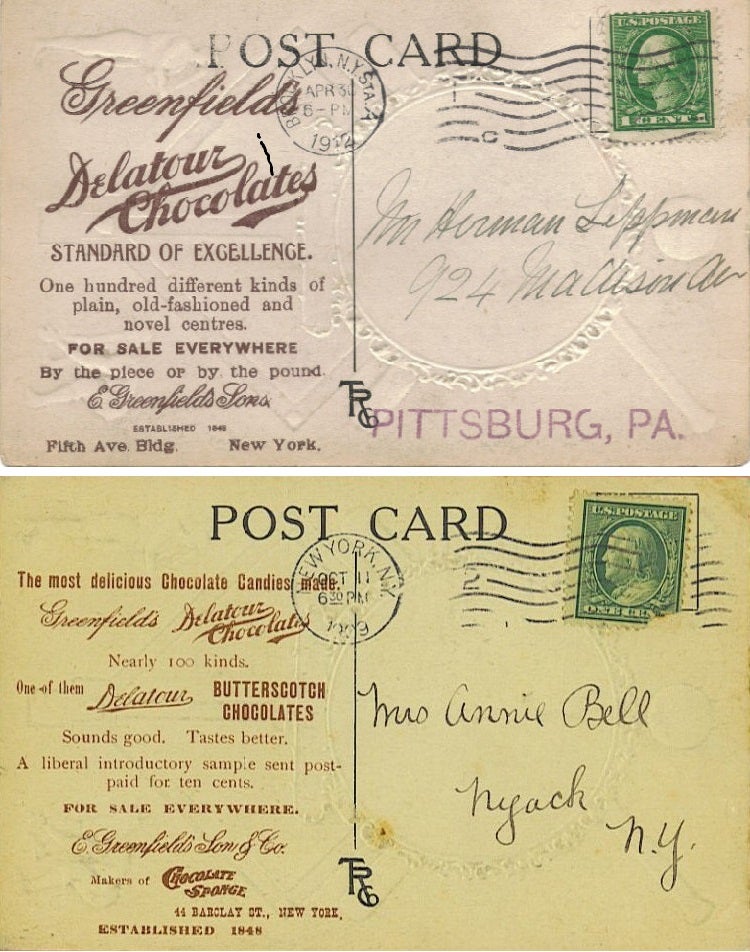 POST CARD
U.S. POSTAGE
1 CENT 1
BROOKLYN, N.Y. STA. A
APR 30
6-PM
1912
Greenfield's
Delatour
Chocolates
STANDARD OF EXCELLENCE.
One hundred different kinds of
plain, old-fashioned and
novel centres.
FOR SALE EVERYWHERE
By the piece or by the pound.
E. Greenfield's Sons
ESTABLISHED 1848
Fifth Ave. Bldg. New York.
Mr Herman Lippman
924 Madison Av
TRG
PITTSBURG, PA.
POST CARD
U.S. POSTAGE
ONE CENT
NEW YORK, N.Y.
OCT 11
6 30 PM
1909
The most delicious Chocolate Candies made.
Greenfield's Delatour
Chocolates
Nearly 100 kinds.
One of them Delatour BUTTERSCOTCH
CHOCOLATES
Sounds good. Tastes better.
A liberal introductory sample sent post-
paid for ten cents.
FOR SALE EVERYWHERE.
E. Greenfield's Son & Co.
Makers of CHOCOLATE
SPONGE
44 BARCLAY ST., NEW YORK.
ESTABLISHED 1848
Mrs Annie Bell
Nyack
N.Y.
TRG